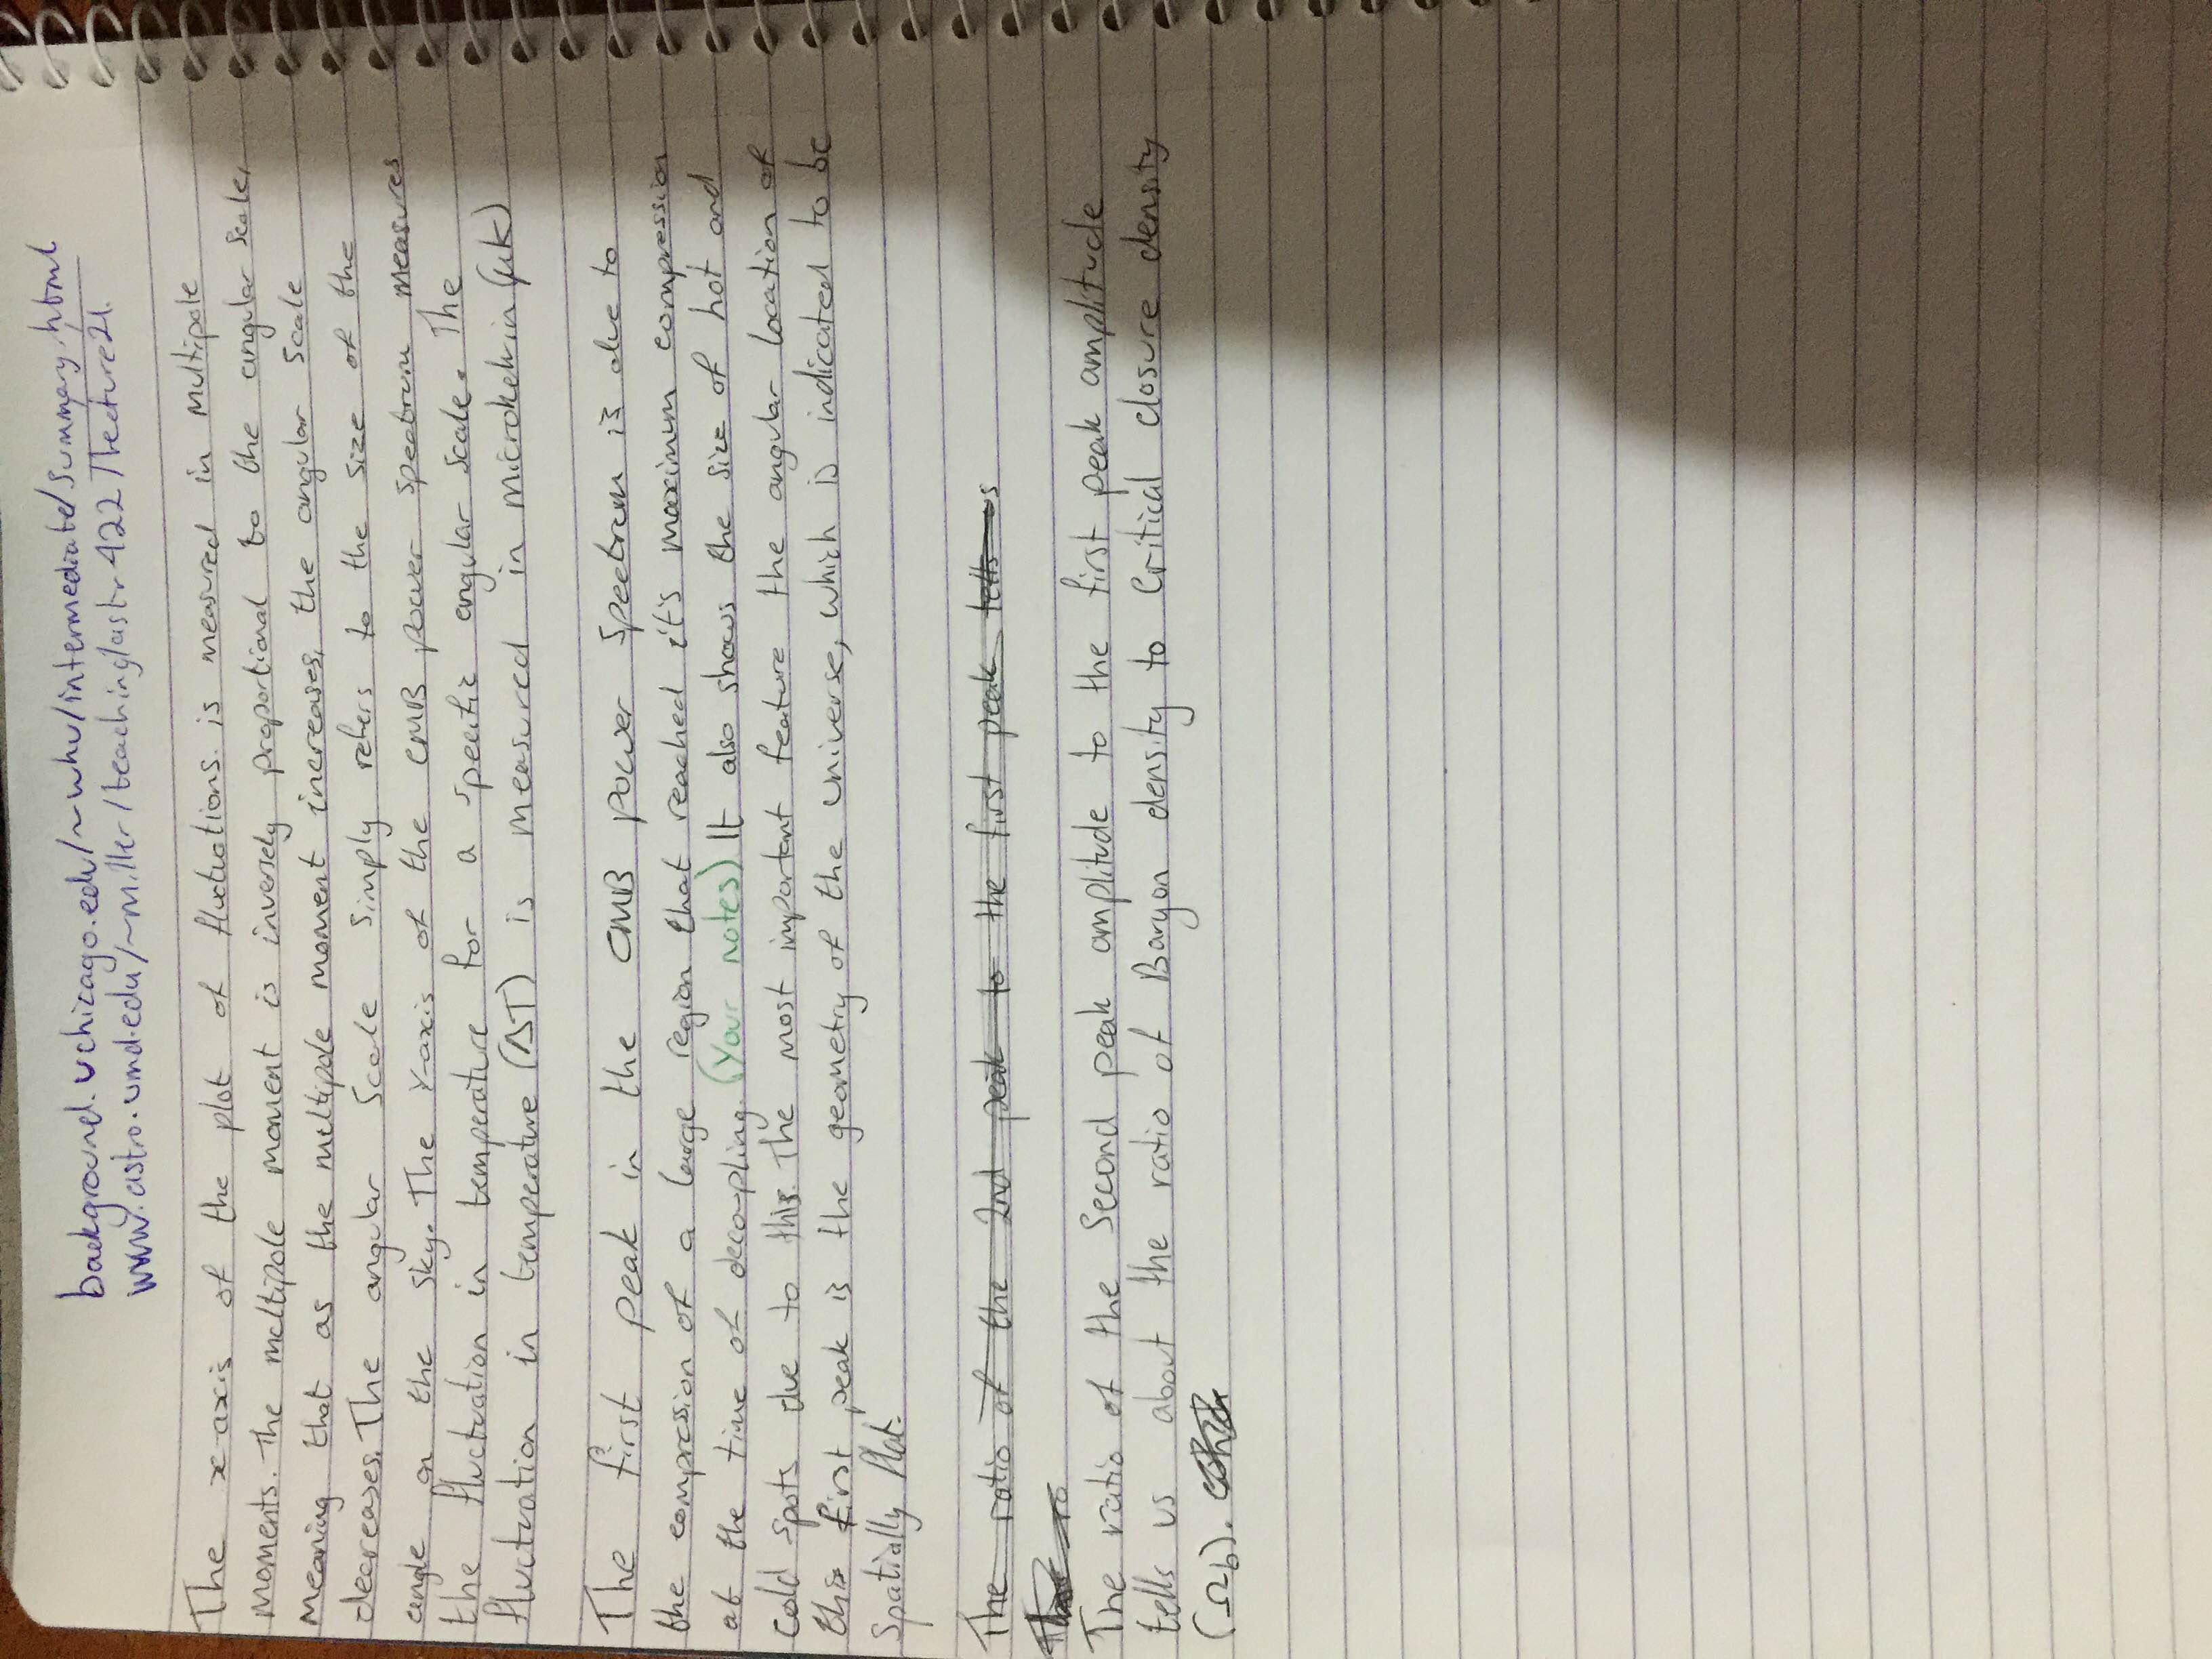 background.uchicago.edu/~whu/intermediate/summary.html
www.astro.umd.edu/~miller/teaching/astr422/lecture21.
The x-axis of the plot of fluctuations. is measured in multipole
moments. The multipole moment is inversely proportional to the angular scale,
meaning that as the multipole moment increases, the angular scale
decreases. The angular scale simply refers to the size of the
angle on the sky. The Y-axis of the CMB power spectrum measures
the fluctuation in temperature for a specific angular scale. The
fluctuation in temperature (ΔT) is measured in microkelvin (μk)
The first peak in the CMB power spectrum is due to
the compression of a large region that reached it's maximum compression
at the time of decoupling. (Your notes) It also shows the size of hot and
cold spots due to this. The most important feature the angular location of
this first peak is the geometry of the universe, which is indicated to be
spatially flat.
The ratio of the 2nd peak to the first peak tells us
The ratio of the second peak amplitude to the first peak amplitude
tells us about the ratio of Baryon density to critical closure density
(Ωb).